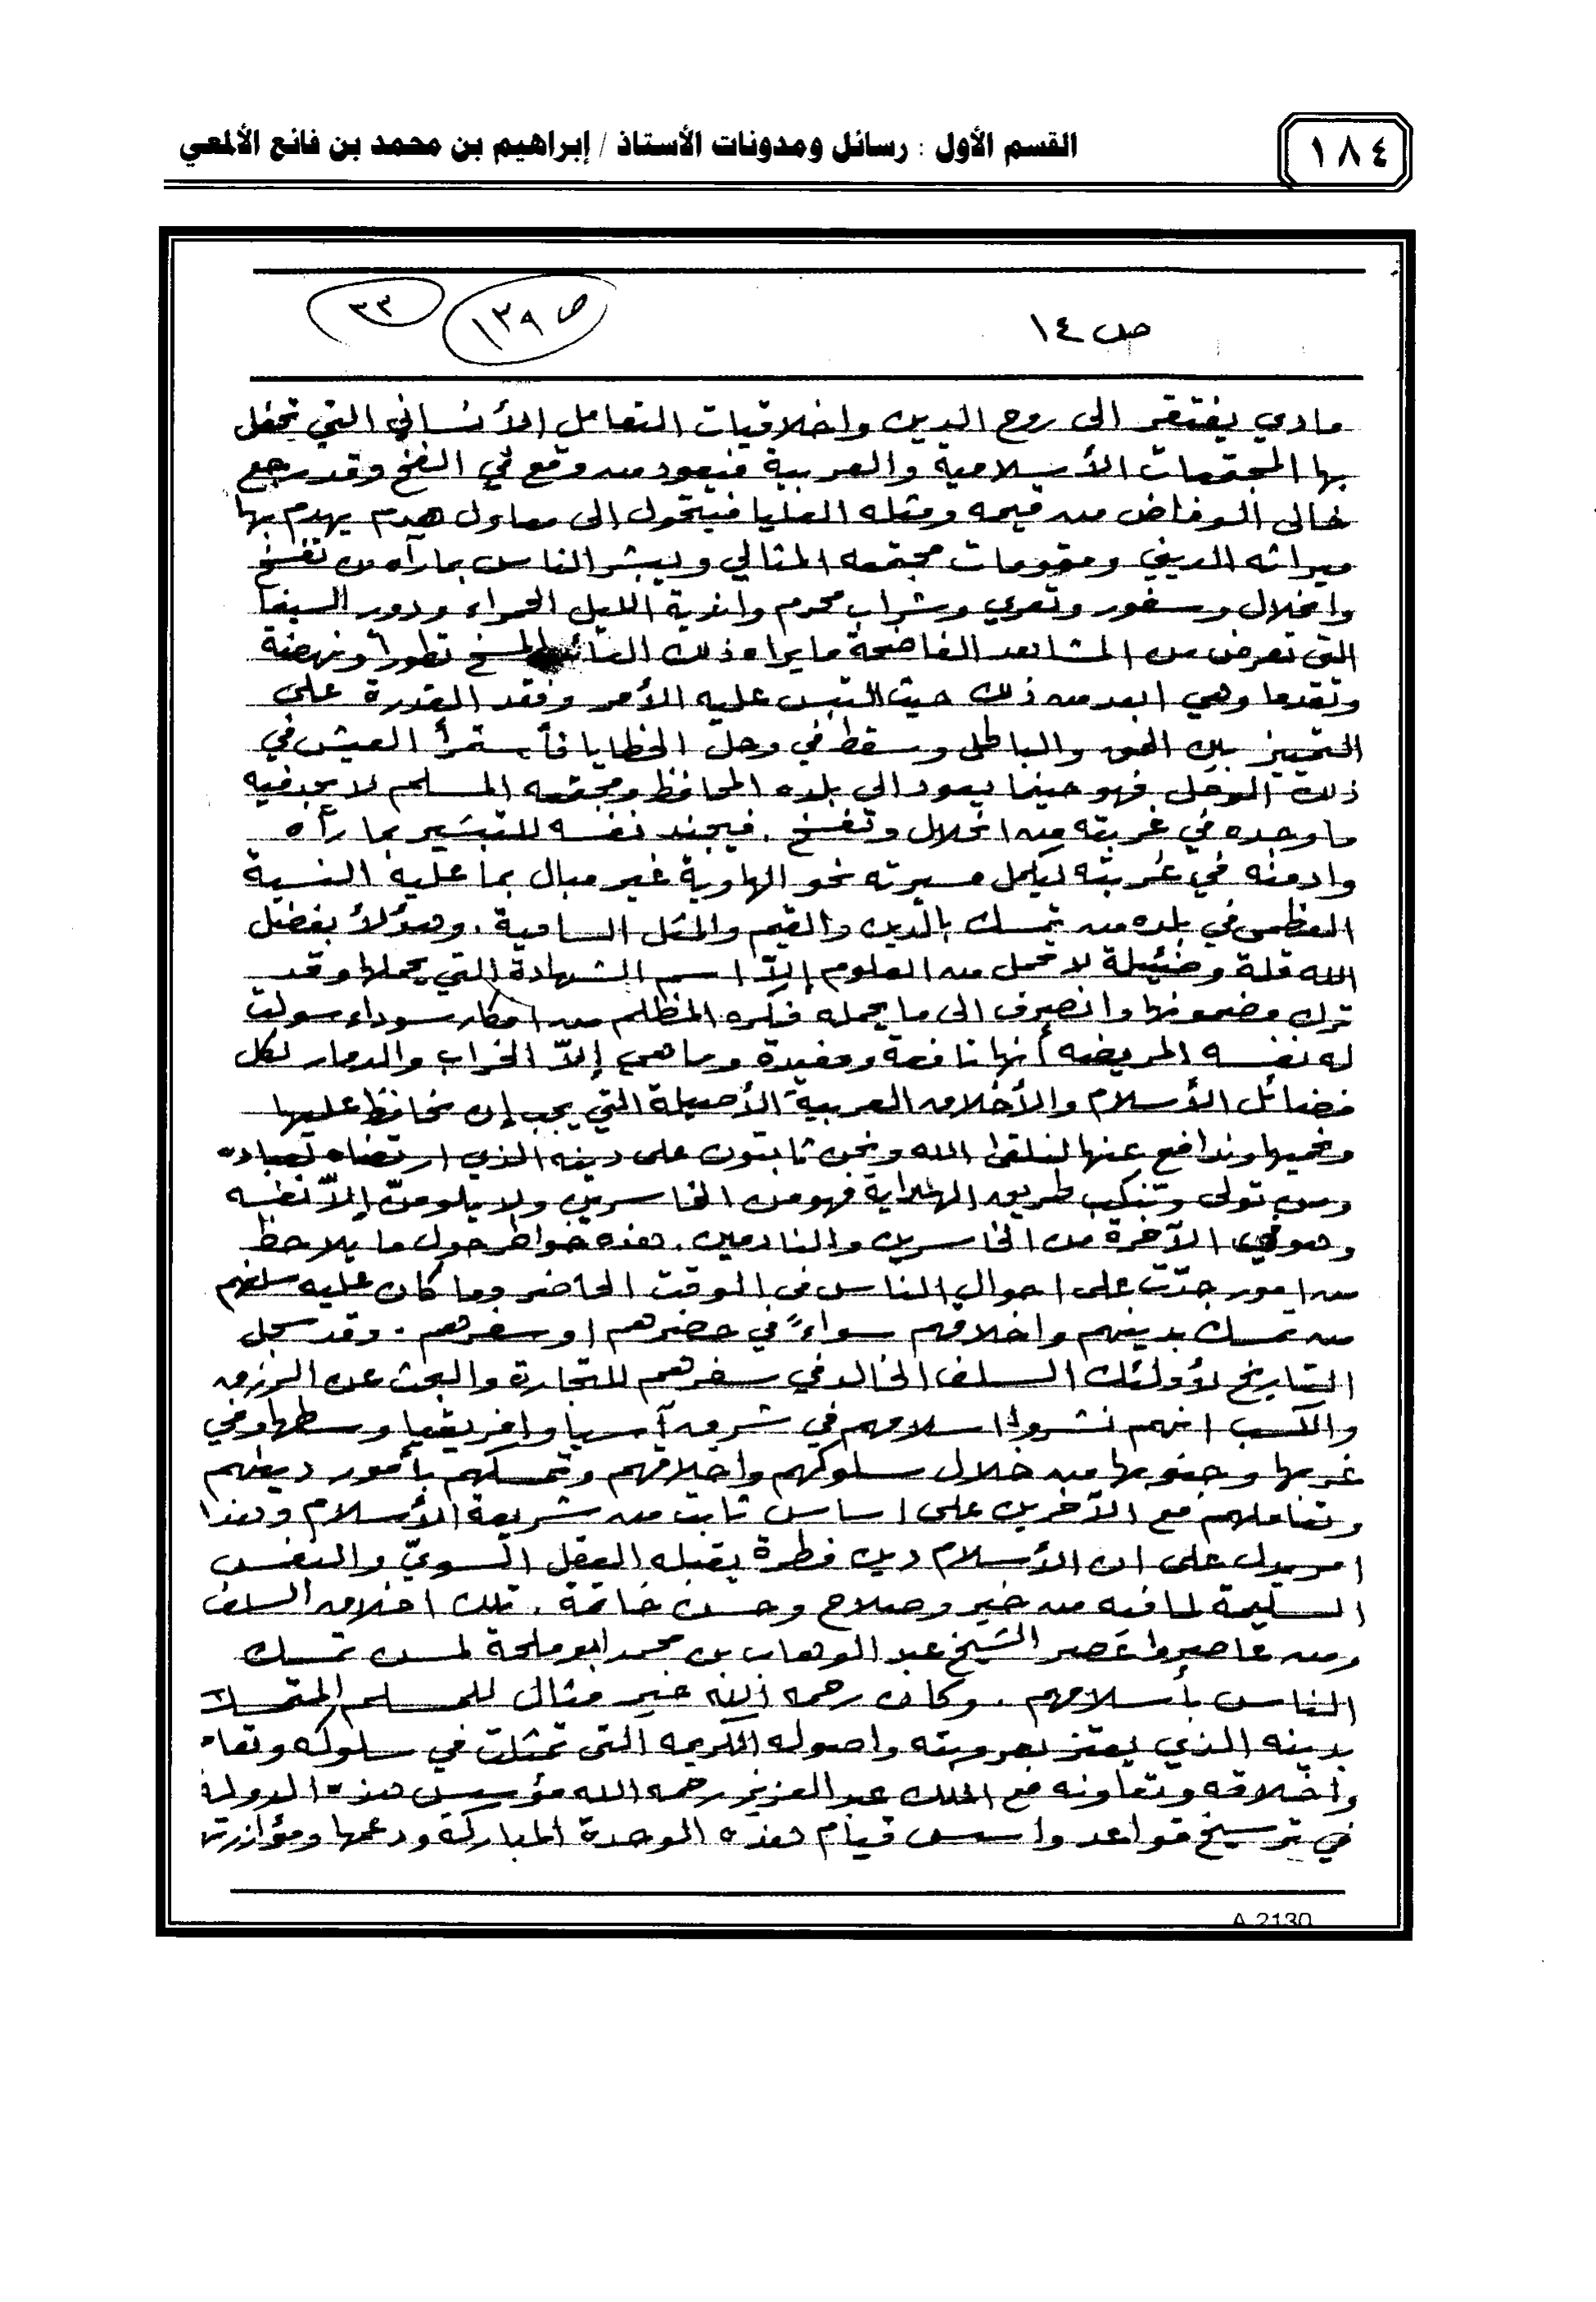 القسم الأول : رسائل ومدونات الأستاذ / إبراهيم بن محمد بن فانع الألمعي
١٨٤
ص ١٤
ص ١٣٩
٣٣
مادي يفتقر الى روح الدين واخلاقيات التعامل الأنساني التي تحفل
بها المجتمعات الأسلامية والعربية فيعود من وقع في الفخ وقد رجع
خالي الوفاض من قيمه ومثله العليا فيتحول الى معاول هدم يهدم بها
ميراثه الديني ومقومات مجتمعه المثالي ويبشر الناس بما رآه من تفسخ
وانحلال وسفور وتعري وشراب محرم واندية الليل الحمراء ودور السينما
التي تعرض من المشاهد الفاضحة ما يراه ذلك المسخ تطوراً ونهضة
وتقدما وهي ابعد من ذلك حيث التبس عليه الأمر وفقد القدرة على
التمييز بين الحق والباطل وسقط في وحل الخطايا فأستمرأ العيش في
ذلك الوحل فهو حينما يعود الى بلده المحافظ ومجتمعه المسلم لا يجد فيه
ما وجده في غربته من انحلال وتفسخ . فيجند نفسه للتبشير بما رأه
وادمنه في غربته ليكمل مسيرته نحو الهاوية غير مبال بما عليه النسبة
العظمى في بلده من تمسك بالدين والقيم والمثل السامية . وهؤلأ بفضل
الله قلة وضئيلة لا تحمل من العلوم إلاّ اسم الشهادة التي يحملها وقد
ترك مضمونها وانصرف الى ما يحمله فكره المظلم من افكار سوداء سولت
له نفسه المريضه أنها نافعة ومفيدة وما هي إلاّ الخراب والدمار لكل
فضائل الأسلام والأخلاق العربية الأصيلة التي يجب إن نحافظ عليها
ونحميها وندافع عنها لنلقى الله ونحن ثابتون على دينه الذي ارتضاه لعباده
ومن تولى وتنكب طريق الهداية فهو من الخاسرين ولا يلومنّ إلاّ نفسه
وهو في الآخرة من الخاسرين والنادمين . هذه خواطر حول ما يلاحظ
من امور جدّت على احوال الناس في الوقت الحاضر وما كان عليه سلفهم
من تمسك بدينهم واخلاقهم سواءً في حضرهم او سفرهم . وقد سجل
التاريخ لأولئك السلف الخالد في سفرهم للتجارة والبحث عن الرزق
والكسب انهم نشروا اسلامهم في شرق آسيا وافريقيا وسطها وفي
غربها وجنوبها من خلال سلوكهم واخلاقهم وتمسكهم بأمور دينهم
وتعاملهم مع الآخرين على اساس ثابت من شريعة الأسلام وهذا
امر يدل على ان الأسلام دين فطرة يقبله العقل السويّ والنفس
السليمة لما فيه من خير وصلاح وحسن خاتمة . تلك اخلاق السلف
ومن عاصروا عصر الشيخ عبد الوهاب بن محمد ابو ملحة لمسن تمسك
الناس بأسلامهم . وكان رحمه الله خير مثال للمسلم المتمسك
بدينه الذي يعتز بعروبته واصوله الكريمه التي تمثلت في سلوكه وتقاه
واخلاقه وتعاونه مع الملك عبد العزيز رحمه الله مؤسس هذه الدولة
في ترسيخ قواعد واسس قيام هذه الوحدة المباركة ودعمها ومؤازرتها
A 2130